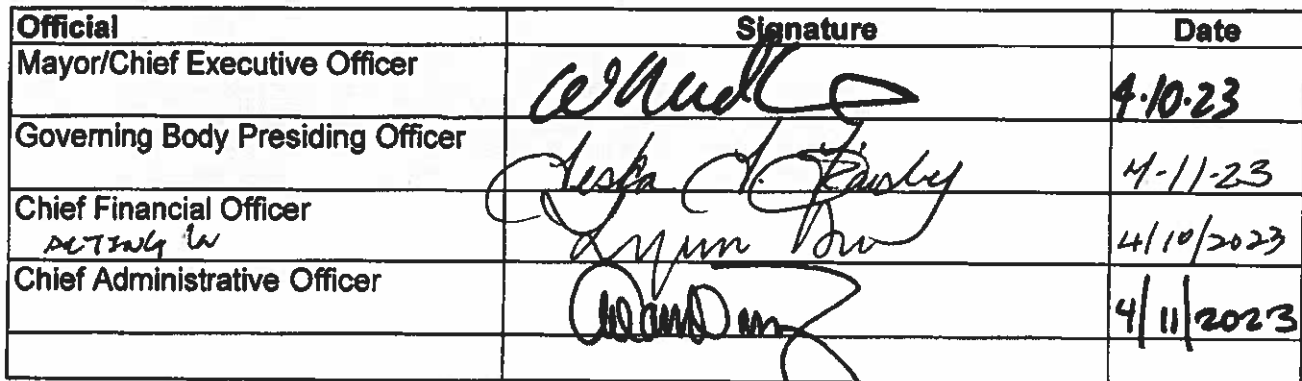 Official Signature Date
Mayor/Chief Executive Officer 4.10.23
Governing Body Presiding Officer 4-11-23
Chief Financial Officer 4/10/2023
ACTING
Chief Administrative Officer 4/11/2023